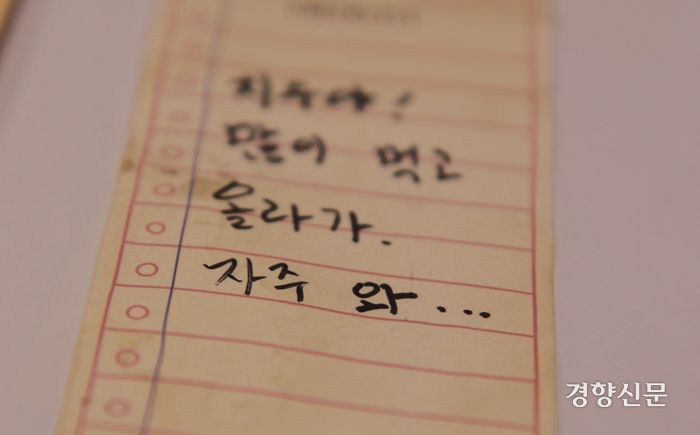 지수야!
많이 먹고
올라가.
자주 와...
경향신문